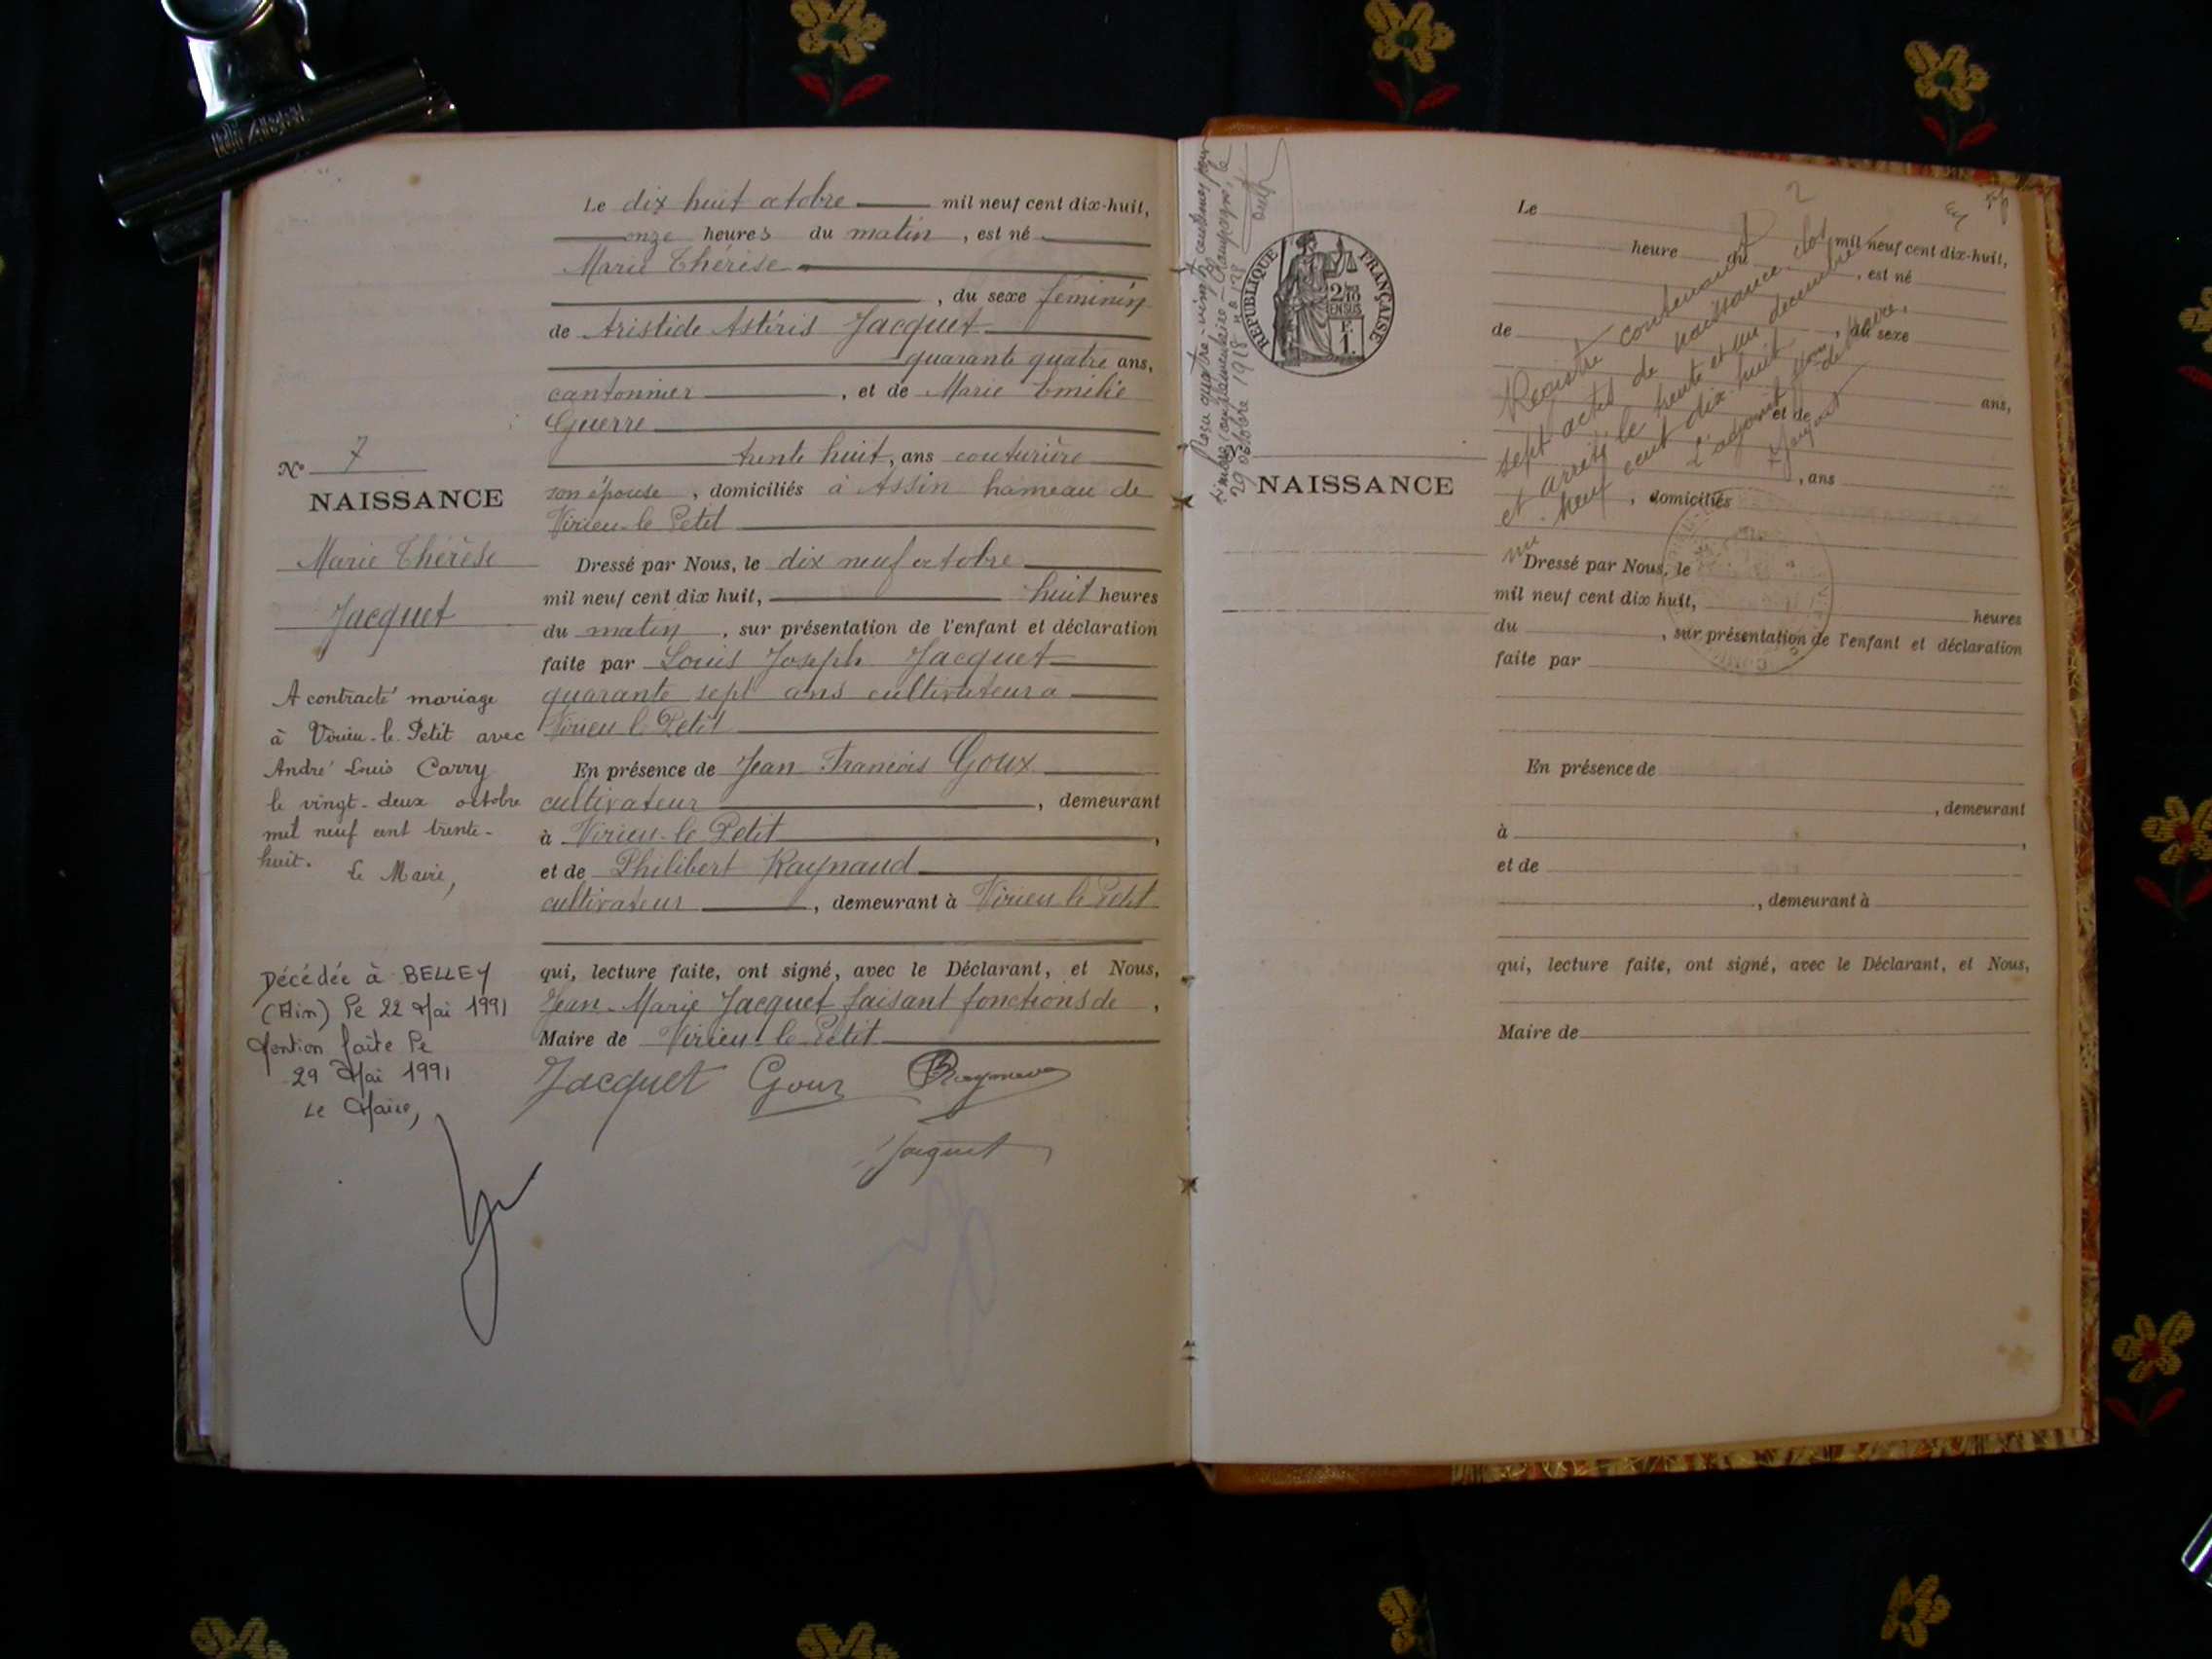 Le dix huit octobre mil neuf cent dix-huit,
onze heures du matin, est né
Marie Thérèse
, du sexe féminin
de Aristide Astéris Jacquet
quarante quatre ans,
cantonnier, et de Marie Emilie
Guerre
trente huit, ans couturière
son épouse, domiciliés à Assin hameau de
Virieu-le Petit
Dressé par Nous, le dix neuf octobre
mil neuf cent dix huit, huit heures
du matin, sur présentation de l'enfant et déclaration
faite par Louis Joseph Jacquet
quarante sept ans cultivateur a
Virieu le Petit
En présence de Jean François Goux
cultivateur, demeurant
à Virieu-le Petit,
et de Philibert Raynaud
cultivateur, demeurant à Virieu le Petit
qui, lecture faite, ont signé, avec le Déclarant, et Nous,
Jean-Marie Jacquet faisant fonctions de,
Maire de Virieu-le-Petit
Jacquet Goux Raynaud
Jacquet
No 7
NAISSANCE
Marie Thérèse
Jacquet
A contracté mariage
à Virieu-le-Petit avec
André Louis Carry
le vingt-deux octobre
mil neuf cent trente-
huit.
Le Maire,
Décédée à BELLEY
(Ain) le 22 Mai 1991
Mention faite le
29 Mai 1991
Le Maire,
29 octobre 1918
RÉPUBLIQUE FRANÇAISE
F.
1.
NAISSANCE
2
Le
mil neuf cent dix-huit,
heure du, est né
, du sexe
de
ans,
et de
, ans
, domiciliés
Dressé par Nous, le
mil neuf cent dix huit,
heures
du, sur présentation de l'enfant et déclaration
faite par
En présence de
, demeurant
à,
et de
, demeurant à
qui, lecture faite, ont signé, avec le Déclarant, et Nous,
Maire de
Registre contenant
sept actes de naissance, clos
et arrêté le trente et un décembre
mil neuf cent dix-huit
L'adjoint